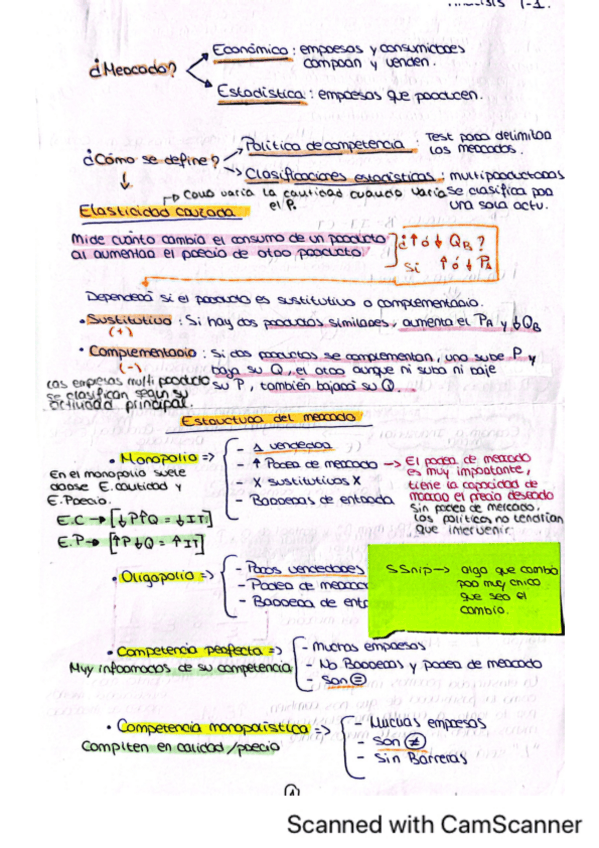 T-1.
¿Mercado?
Económico: empresas y consumidores
compran y venden.
Estadística: empresas que producen.
¿Cómo se define?
Política de competencia : Test para delimitar
los mercados.
Clasificaciones estadísticas: multiproductoras
se clasifica por
una sola actv.
Como varía la cantidad cuando varía
el P.
Elasticidad cruzada
Mide cuánto cambia el consumo de un producto
al aumentar el precio de otro producto
¿↑ ó ↓ QB?
Si ↑ ó ↓ PA
Dependerá si el producto es sustitutivo o complementario.
• Sustitutivo: Si hay dos productos similares, aumenta el PA y ↓QB
(+)
• Complementario: Si dos productos se complementan, uno sube P y
(-) baja su Q, el otro aunque ni suba ni baje
su P, también bajará su Q.
Las empresas multiproducto
se clasifican según su
actividad principal.
Estructura del mercado
• Monopolio =>
- 1 vendedor
- ↑ Poder de mercado
X sustitutivos X
- Barreras de entrada
→ El poder de mercado
es muy importante,
tiene la capacidad de
marcar el precio deseado
Sin poder de mercado,
los políticos no tendrían
que intervenir.
En el monopolio suele
darse E.cantidad y
E.Precio.
E.C → [↓P↑Q = ↓IT]
E.P → [↑P↓Q = ↑IT]
• Oligopolio =>
- Pocos vendedores
- Poder de mercado
- Barrera de entr
SSnip → algo que cambó
por muy chico
que sea el
cambio.
• Competencia perfecta =>
Muy informados de su competencia
- Muchas empresas
- No Barreras y poder de mercado
- Son =
• Competencia monopolística =>
Compiten en calidad/precio
- Muchas empresas
- Son ≠
- Sin Barreras
1
Scanned with CamScanner